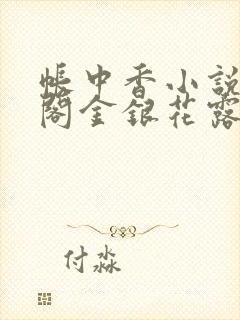 帐中香小說
閣金銀花露
付淼